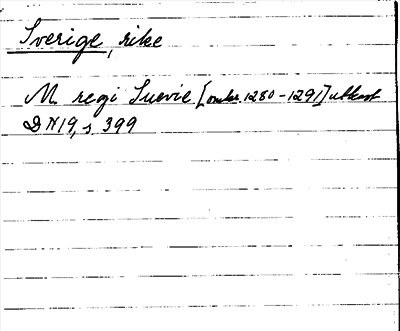 Sverige, rike
M. regi Suecie [omkr. 1280-1291] utkast
DN 19, s. 399